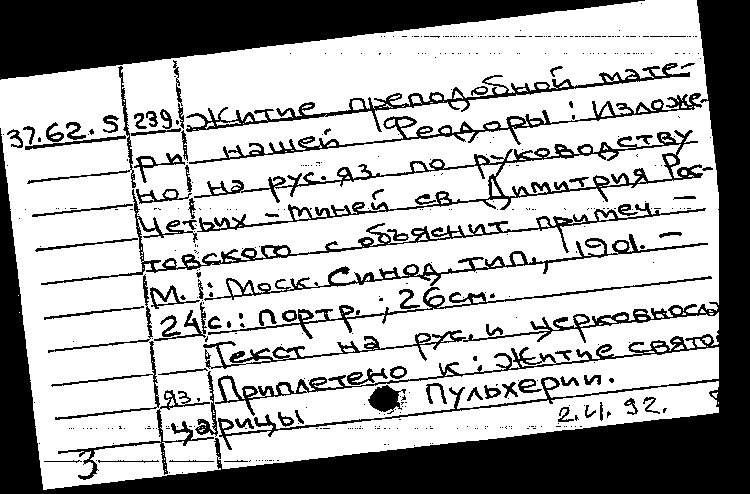 37.62.5 239. Житие преподобной мате-
ри нашей Феодоры: Изложе-
но на рус. яз. по руководству
Четьих-миней св. Димитрия Рос-
товского с объяснит примеч. -
М.: Моск. Синод. тип., 1901. -
24 с.: портр.; 26 см.
Текст на рус. и церковносла
яз. Приплетено к: Житие свято
царицы Пульхерии.
3